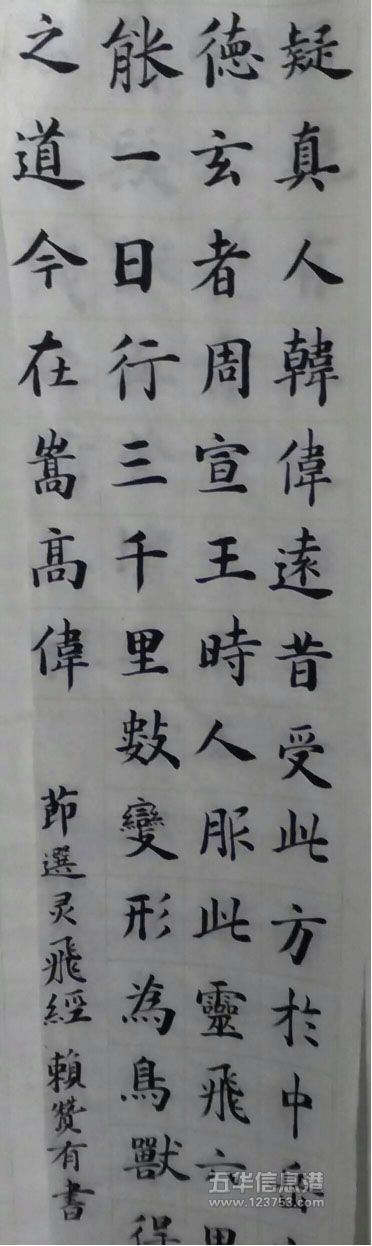 疑真人韓偉遠昔受此方於中岳
德玄者周宣王時人服此靈飛六甲
能一日行三千里數變形為鳥獸得
之道今在嵩高偉
節選灵飛經 賴贊有書
五华信息港
www.123753.com